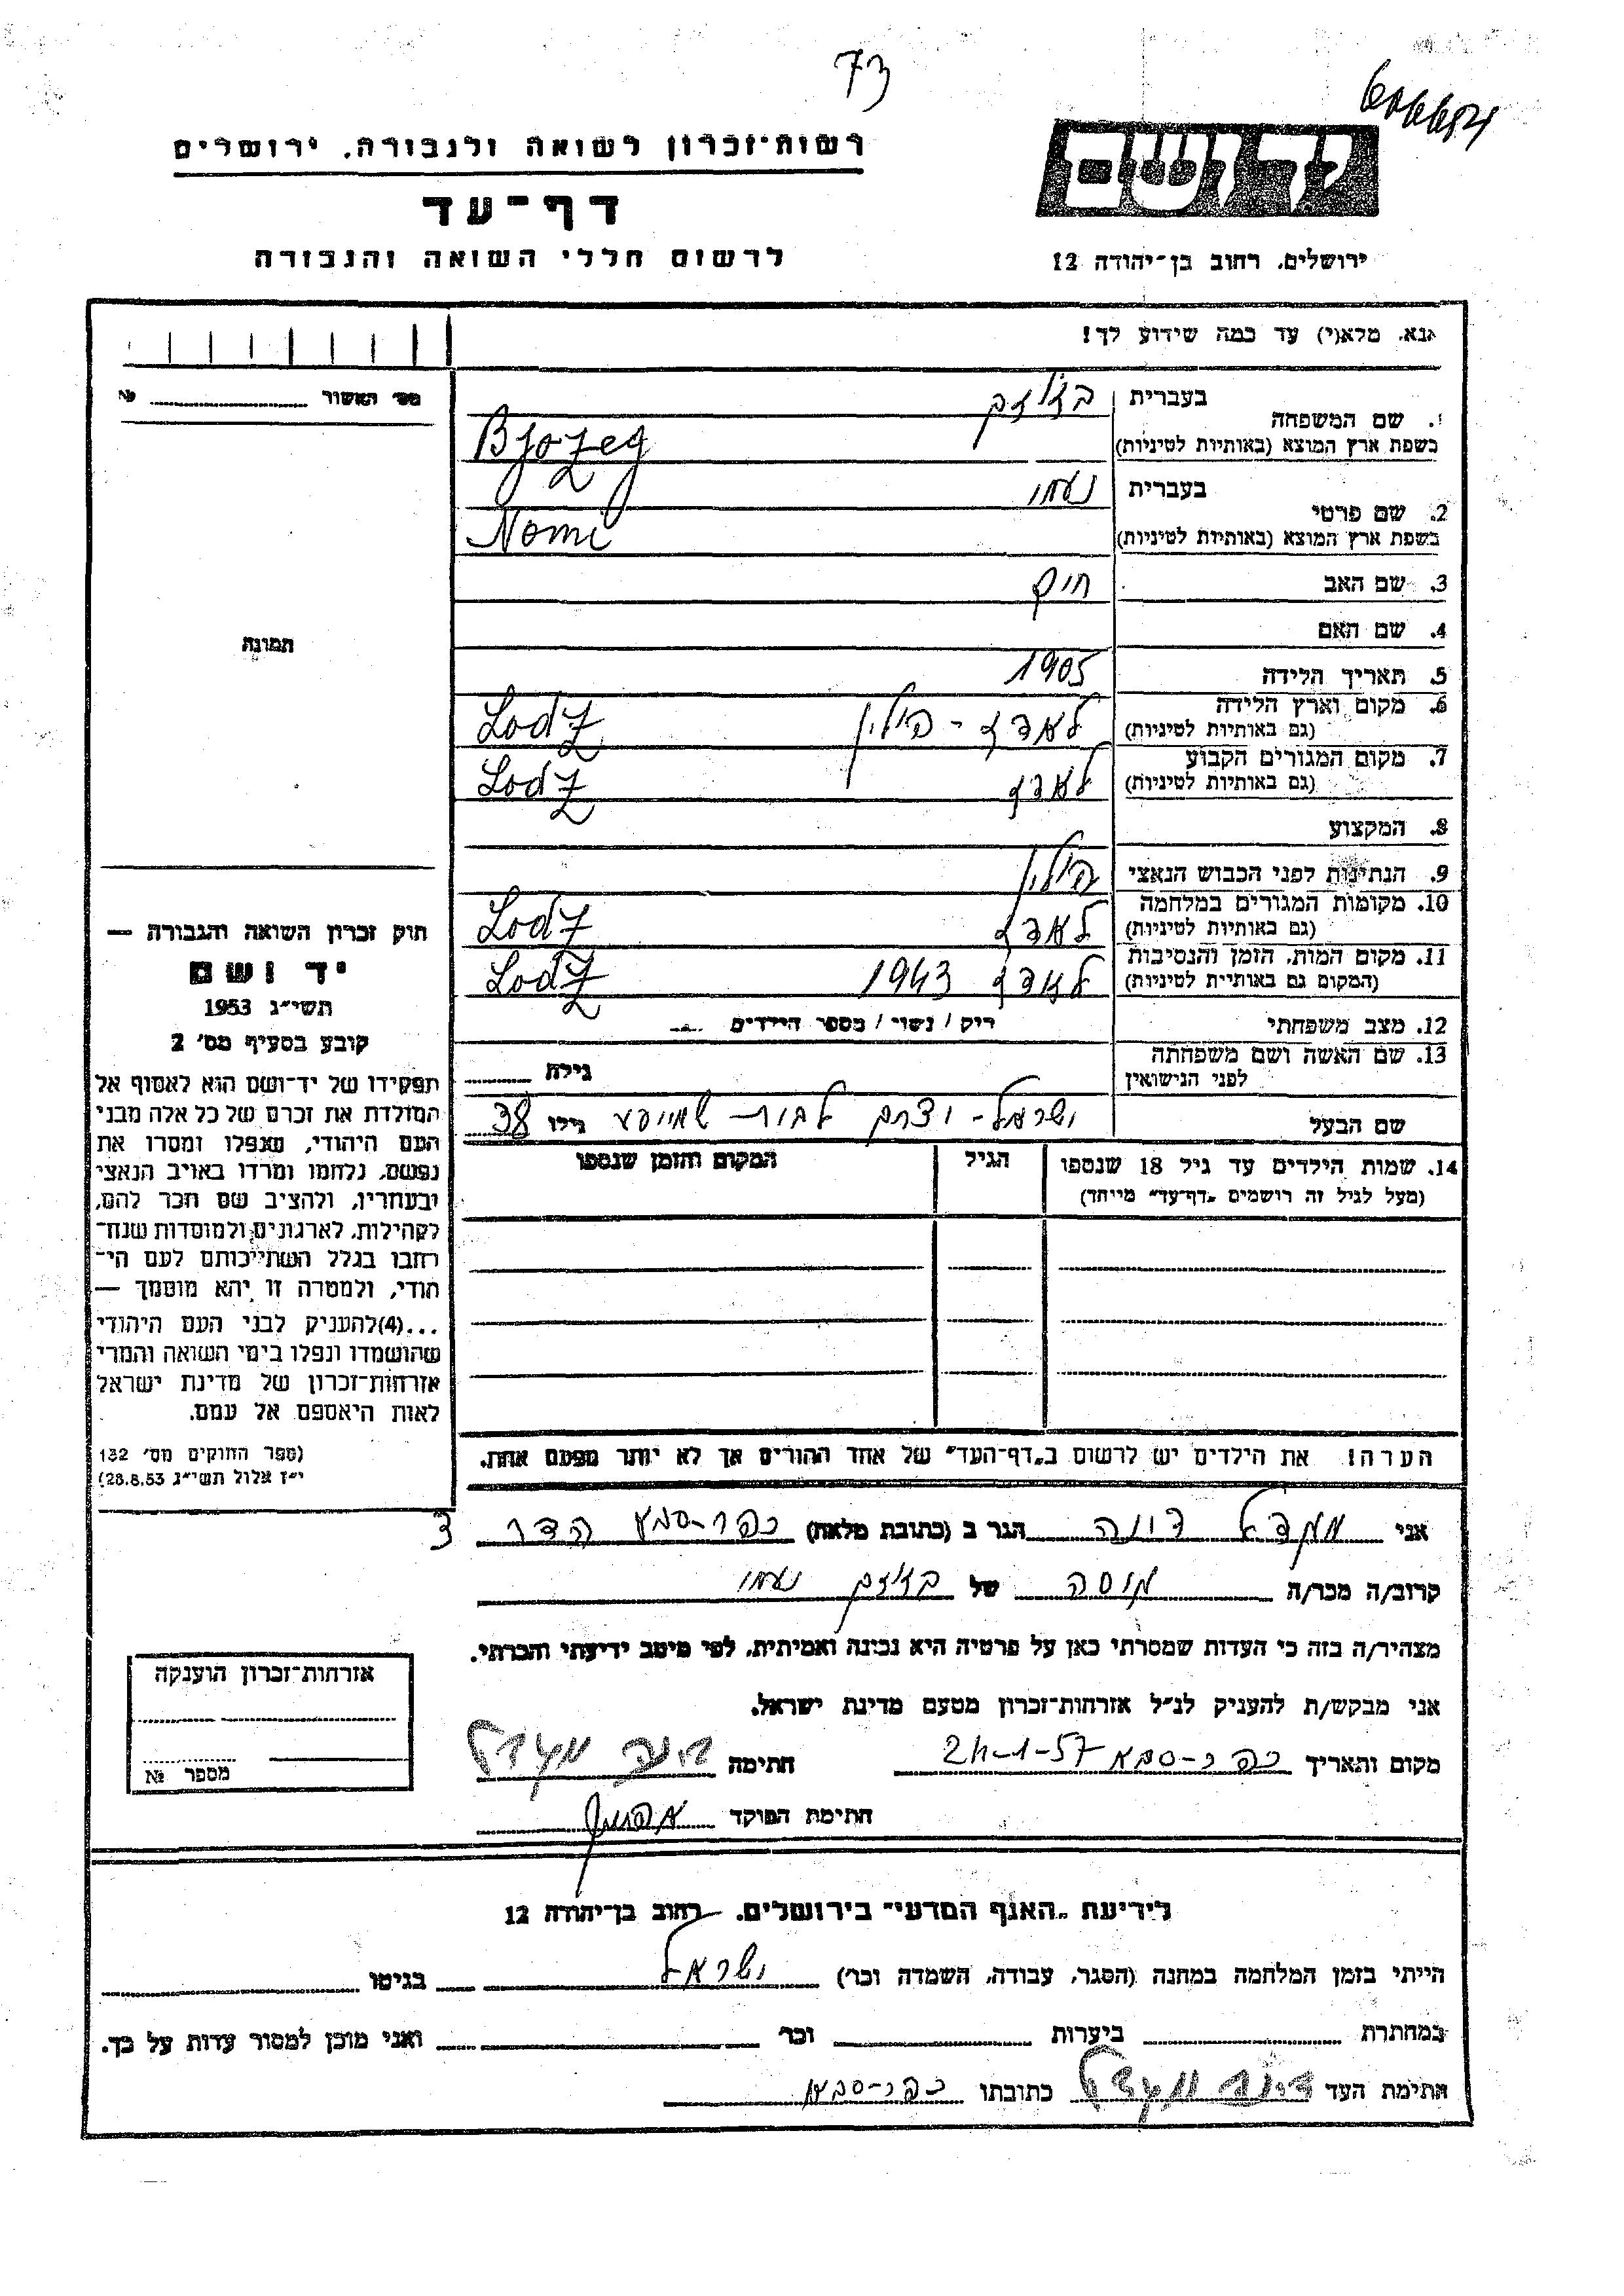 73
רשות־זכרון לשואה ולגבורה, ירושלים
דף־עד
לרשום חללי השואה והגבורה
יד ושם
ירושלים, רחוב בן־יהודה 12
אנא, מלא(י) עד כמה שידוע לך!
מס׳ האשור № 
1. שם המשפחה
בעברית
בשפת ארץ המוצא (באותיות לטיניות) Bjozeg
2. שם פרטי
בעברית נעמי
בשפת ארץ המוצא (באותיות לטיניות) Nomi
3. שם האב חיים
4. שם האם
5. תאריך הלידה 1905
6. מקום וארץ הלידה
(גם באותיות לטיניות) לאדז - פולין Lodz
7. מקום המגורים הקבוע
(גם באותיות לטיניות) לאדז Lodz
8. המקצוע
9. הנתינות לפני הכבוש הנאצי פולין
10. מקומות המגורים במלחמה
(גם באותיות לטיניות) לאדז Lodz
11. מקום המות, הזמן והנסיבות
(המקום גם באותיות לטיניות) לאדז 1943 Lodz
12. מצב משפחתי רוק / נשוי / מספר הילדים
13. שם האשה ושם משפחתה
לפני הנישואין גילה
שם הבעל ישראל - גילו 38
14. שמות הילדים עד גיל 18 שנספו
(מעל לגיל זה רושמים „דף־עד״ מיוחד)
הגיל
המקום והזמן שנספו
הערה! את הילדים יש לרשום ב„דף־העד״ של אחד ההורים אך לא יותר מפעם אחת.
תמונה
חוק זכרון השואה והגבורה —
יד ושם
תשי״ג 1953
קובע בסעיף מס׳ 2
תפקידו של יד־ושם הוא לאסוף אל
המולדת את זכרם של כל אלה מבני
העם היהודי, שנפלו ומסרו את
נפשם, נלחמו ומרדו באויב הנאצי
ובעוזריו, ולהציב שם וזכר להם,
לקהילות, לארגונים ולמוסדות שנח־
רבו בגלל השתייכותם לעם הי־
הודי, ולמטרה זו יהא מוסמך —
...(4)להעניק לבני העם היהודי
שהושמדו ונפלו בימי השואה והמרי
אזרחות־זכרון של מדינת ישראל
לאות היאספם אל עמם.
(ספר החוקים מס׳ 132
י״ז אלול תשי״ג 28.8.53)
אני דינה הגר ב (כתובת מלאה) כפר-סבא הדר 3
קרוב/ה מכר/ה של נעמי
מצהיר/ה בזה כי העדות שמסרתי כאן על פרטיה היא נכונה ואמיתית, לפי מיטב ידיעתי והכרתי.
אני מבקש/ת להעניק לנ״ל אזרחות־זכרון מטעם מדינת ישראל.
מקום ותאריך כפר-סבא 24-1-57 חתימה דינה
חתימת הפוקד
אזרחות־זכרון הוענקה
מספר №
לידיעת „האגף המדעי״ בירושלים, רחוב בן־יהודה 12
הייתי בזמן המלחמה במחנה (הסגר, עבודה, השמדה וכו׳) ישראל בגיטו
במחתרת ביערות וכו׳ ואני מוכן למסור עדות על כך.
חתימת העד דינה כתובתו כפר-סבא